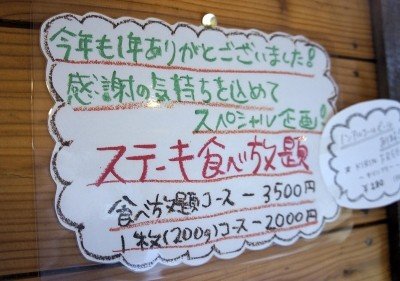 今年も1年ありがとございました!
感謝の気持ちを込めて
スペシャル企画!
ステーキ食べ放題
食べ放題コースー3500円
1枚(200g)コースー2000円
KIRIN FREE